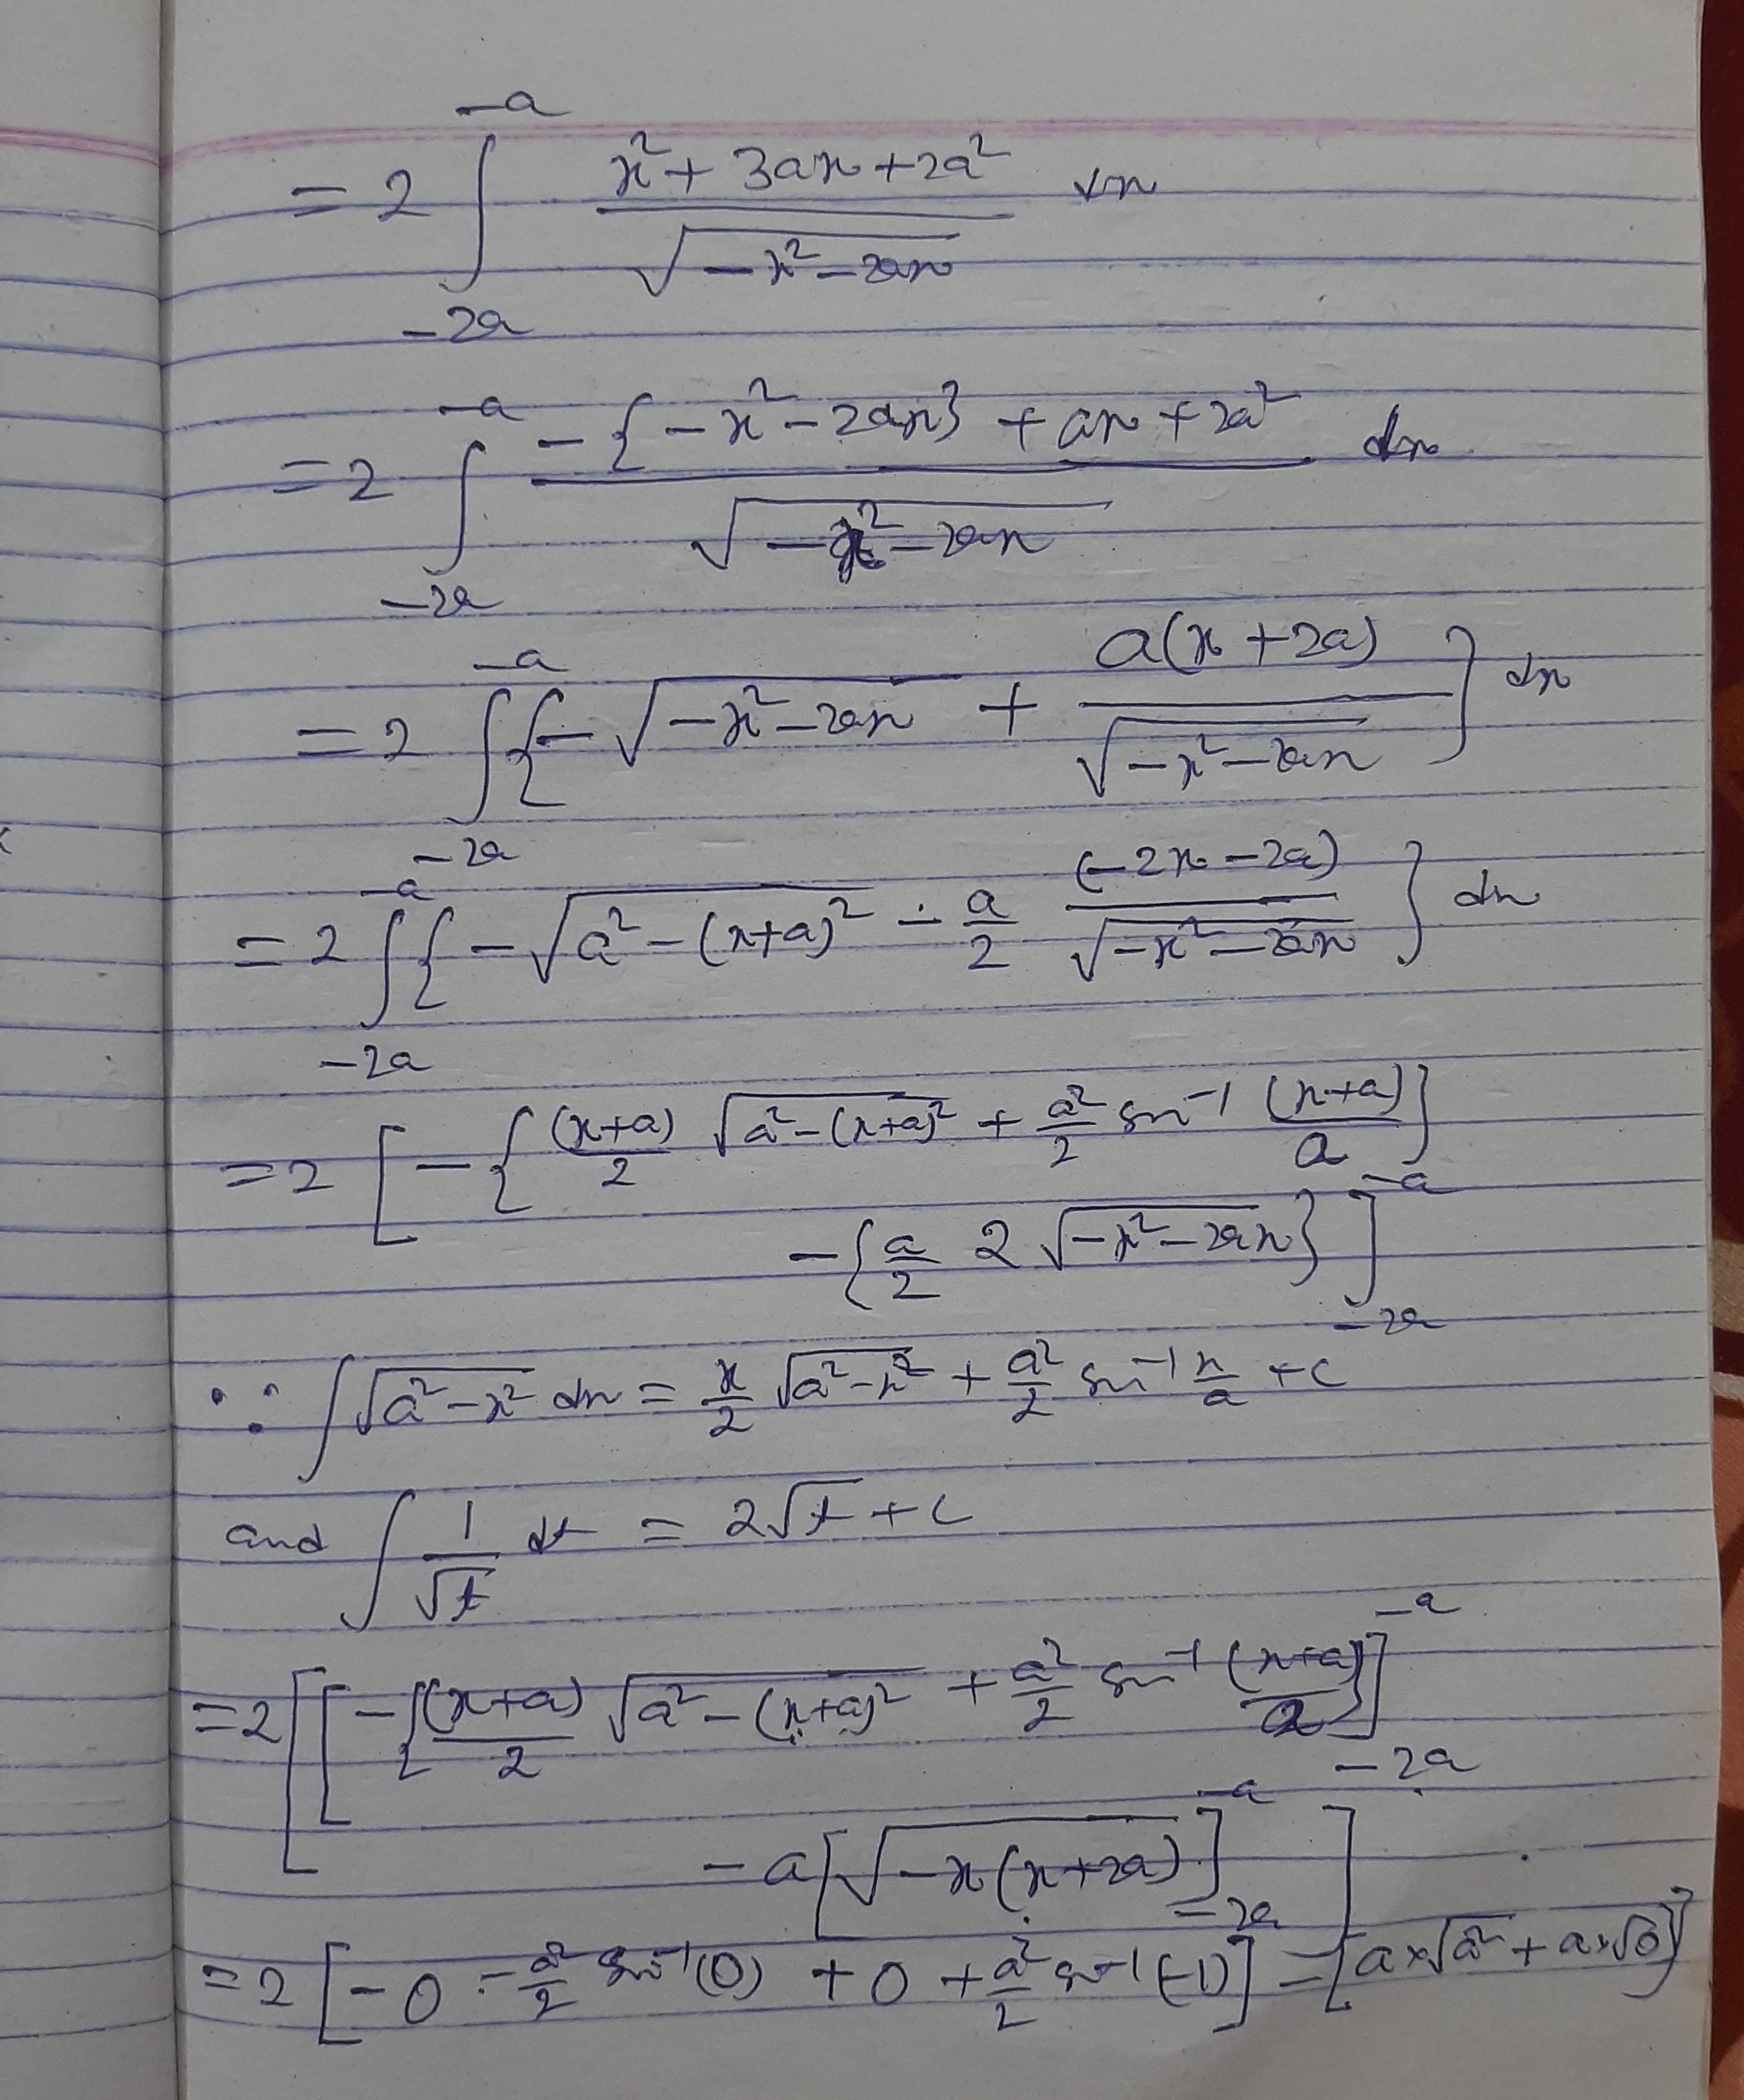 = 2 ∫_{-2a}^{-a} (x² + 3ax + 2a²) / √(-x² - 2ax) dx
= 2 ∫_{-2a}^{-a} (-{-x² - 2ax} + ax + 2a²) / √(-x² - 2ax) dx
= 2 ∫_{-2a}^{-a} {-√(-x² - 2ax) + a(x + 2a) / √(-x² - 2ax)} dx
= 2 ∫_{-2a}^{-a} {-√(a² - (x+a)²) - a/2 (-2x - 2a) / √(-x² - 2ax)} dx
= 2 [ -{ (x+a)/2 √(a² - (x+a)²) + a²/2 sin⁻¹ (x+a)/a }
- { a/2 2 √(-x² - 2ax) } ]_{-2a}^{-a}
∵ ∫ √(a² - x²) dx = x/2 √(a² - x²) + a²/2 sin⁻¹ x/a + c
and ∫ 1/√t dt = 2√t + c
= 2 [ [ -{ (x+a)/2 √(a² - (x+a)²) + a²/2 sin⁻¹ (x+a)/a } ]_{-2a}^{-a}
- a [ √(-x(x+2a)) ]_{-2a}^{-a} ]
= 2 [ -0 - a²/2 sin⁻¹(0) + 0 + a²/2 sin⁻¹(-1) ] - [ a×√a² + a×√0 ]